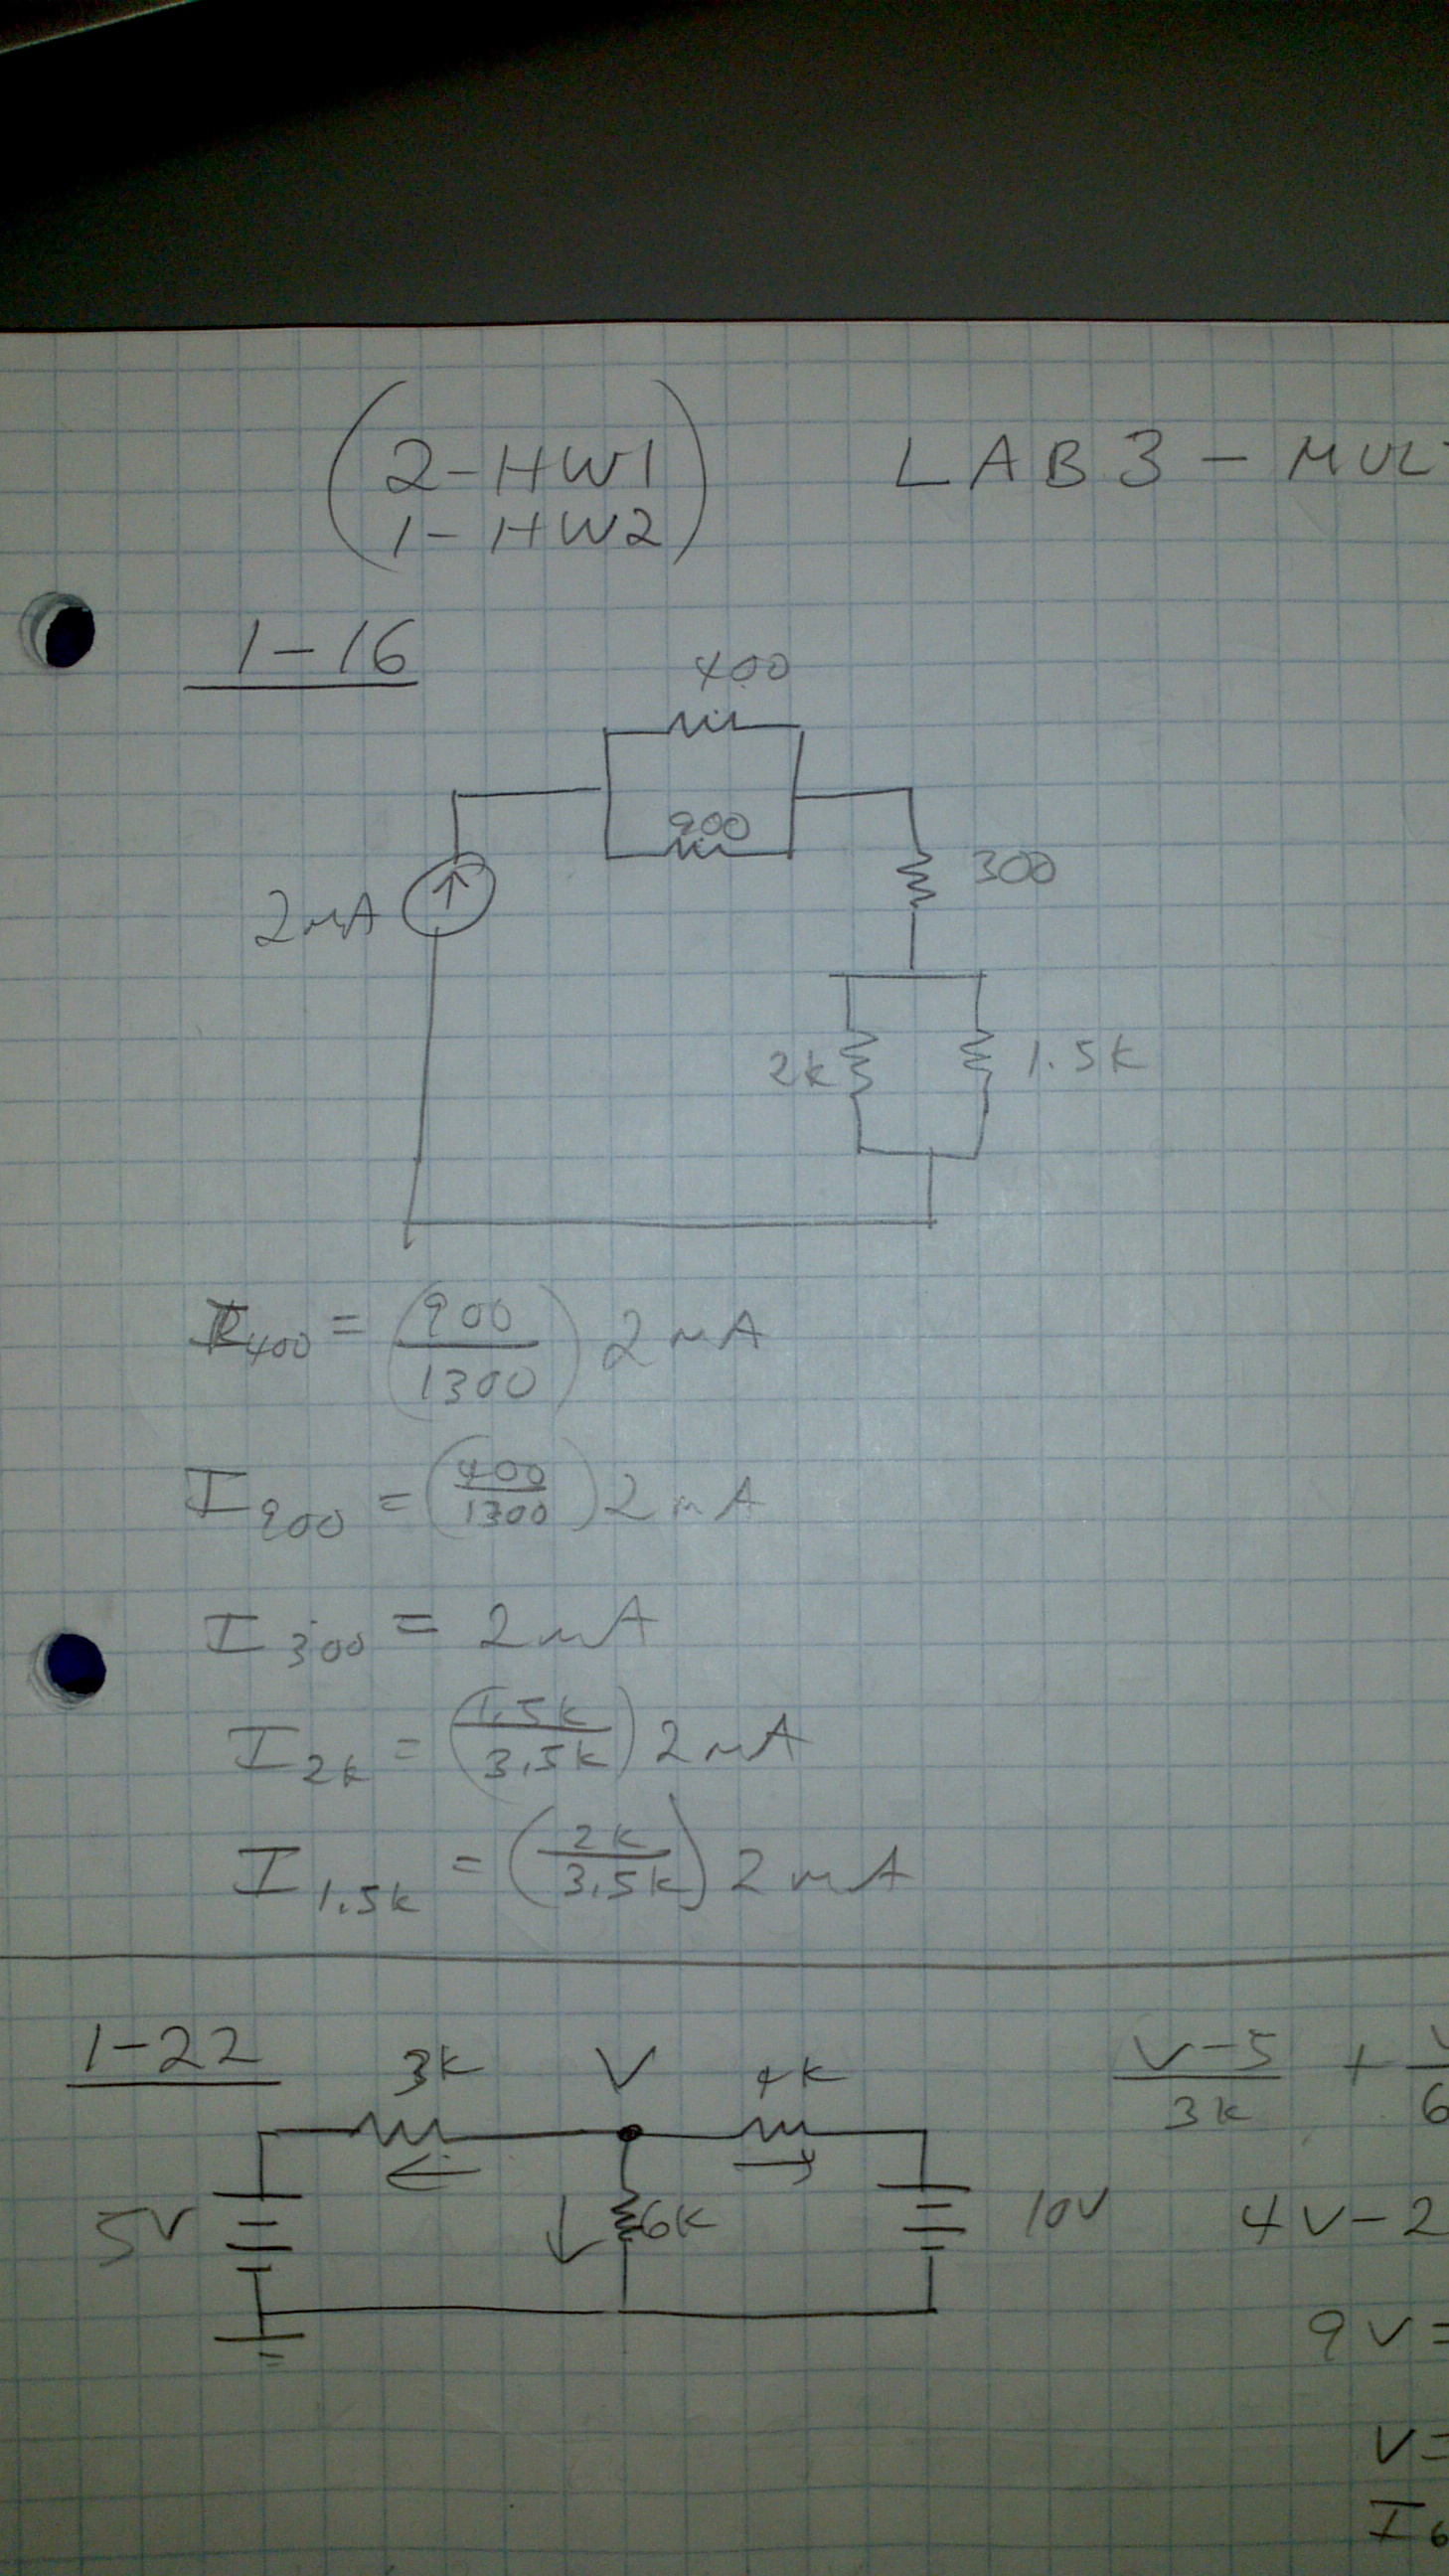 2-HW1
1-HW2
LAB 3 - MUL
1-16
400
900
300
2mA
2k
1.5k
I400 = (900/1300) 2mA
I900 = (400/1300) 2mA
I300 = 2mA
I2k = (1.5k/3.5k) 2mA
I1.5k = (2k/3.5k) 2mA
1-22
3k
V
4k
5V
6k
10V
V-5/3k +
6
4V-2
9V=
V=
I6